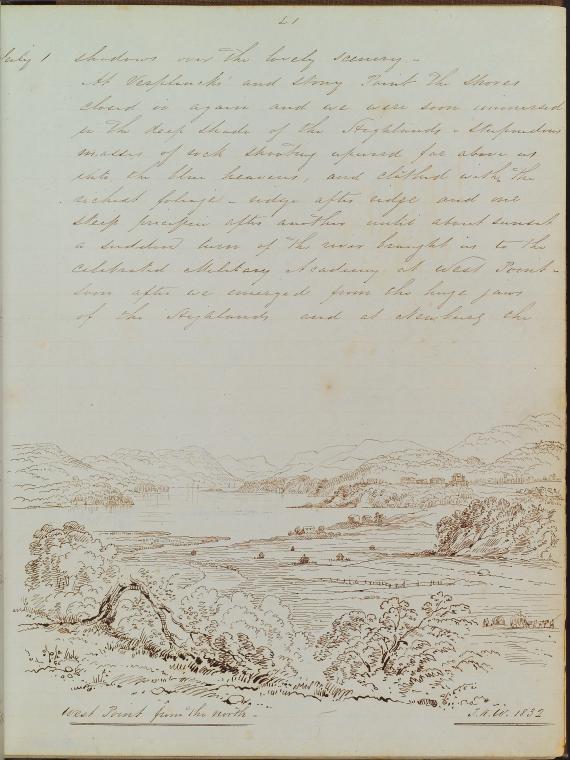 21
July 1 shadows over the lovely scenery -
At Verplancks' and Stony Point the shores
closed in again and we were soon immersed
in the deep shade of the Highlands - stupendous
masses of rock shooting upward far above us
into the blue heavens, and clothed with the
richest foliage - ridge after ridge and one
steep precipice after another until about sunset
a sudden turn of the river brought us to the
celebrated Military Academy at West Point -
soon after we emerged from the huge jaws
of the Highlands and at Newburg the
West Point from the north -
1832